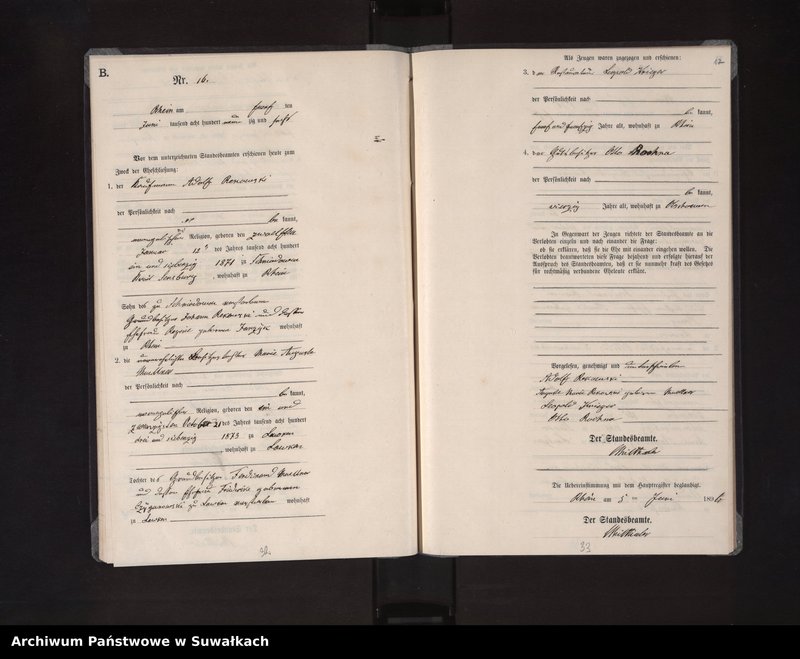 B.
Nr. 16.
Rhein am fünf ten
Juni tausend acht hundert neun zig und sechs
Vor dem unterzeichneten Standesbeamten erschienen heute zum
Zweck der Eheschließung:
1. der Kaufmann Adolf
der Persönlichkeit nach
be kannt,
evangelischer Religion, geboren den zwoelften
Januar 12 des Jahres tausend acht hundert
ein und siebenzig 1871 zu
Kreis Sensburg, wohnhaft zu Rhein
Sohn des zu verstorbenen
Grundbesitzer Johann und dessen
Ehefrau Regine geborene wohnhaft
zu Rhein
2. die unverehelichte Besitzertochter Marie Auguste
Muellner
der Persönlichkeit nach
be kannt,
evangelischer Religion, geboren den drei und
zwanzigsten October des Jahres tausend acht hundert
drei und siebenzig 1873 zu Lawken
, wohnhaft zu Lawken
Tochter des Grundbesitzer Ferdinand Muellner
und dessen Ehefrau Friedrike geborenen
zu Lawken verstorben wohnhaft
zu Lawken
32.
12
Als Zeugen waren zugezogen und erschienen:
3. der Leopold Krieger
der Persönlichkeit nach
be kannt,
fünf und fünfzig Jahre alt, wohnhaft zu Rhein
4. der Gutsbesitzer Otto Rochna
der Persönlichkeit nach
be kannt,
vierzig Jahre alt, wohnhaft zu
In Gegenwart der Zeugen richtete der Standesbeamte an die
Verlobten einzeln und nach einander die Frage:
ob sie erklären, daß sie die Ehe mit einander eingehen wollen. Die
Verlobten beantworteten diese Frage bejahend und erfolgte hierauf der
Ausspruch des Standesbeamten, daß er sie nunmehr kraft des Gesetzes
für rechtmäßig verbundene Eheleute erkläre.
Vorgelesen, genehmigt und unterschrieben
Adolf
Auguste Marie geborene Muellner
Leopold Krieger
Otto Rochna
Der Standesbeamte.
Die Uebereinstimmung mit dem Hauptregister beglaubigt.
Rhein am 5 ten Juni 1896
Der Standesbeamte.
33
Archiwum Państwowe w Suwałkach